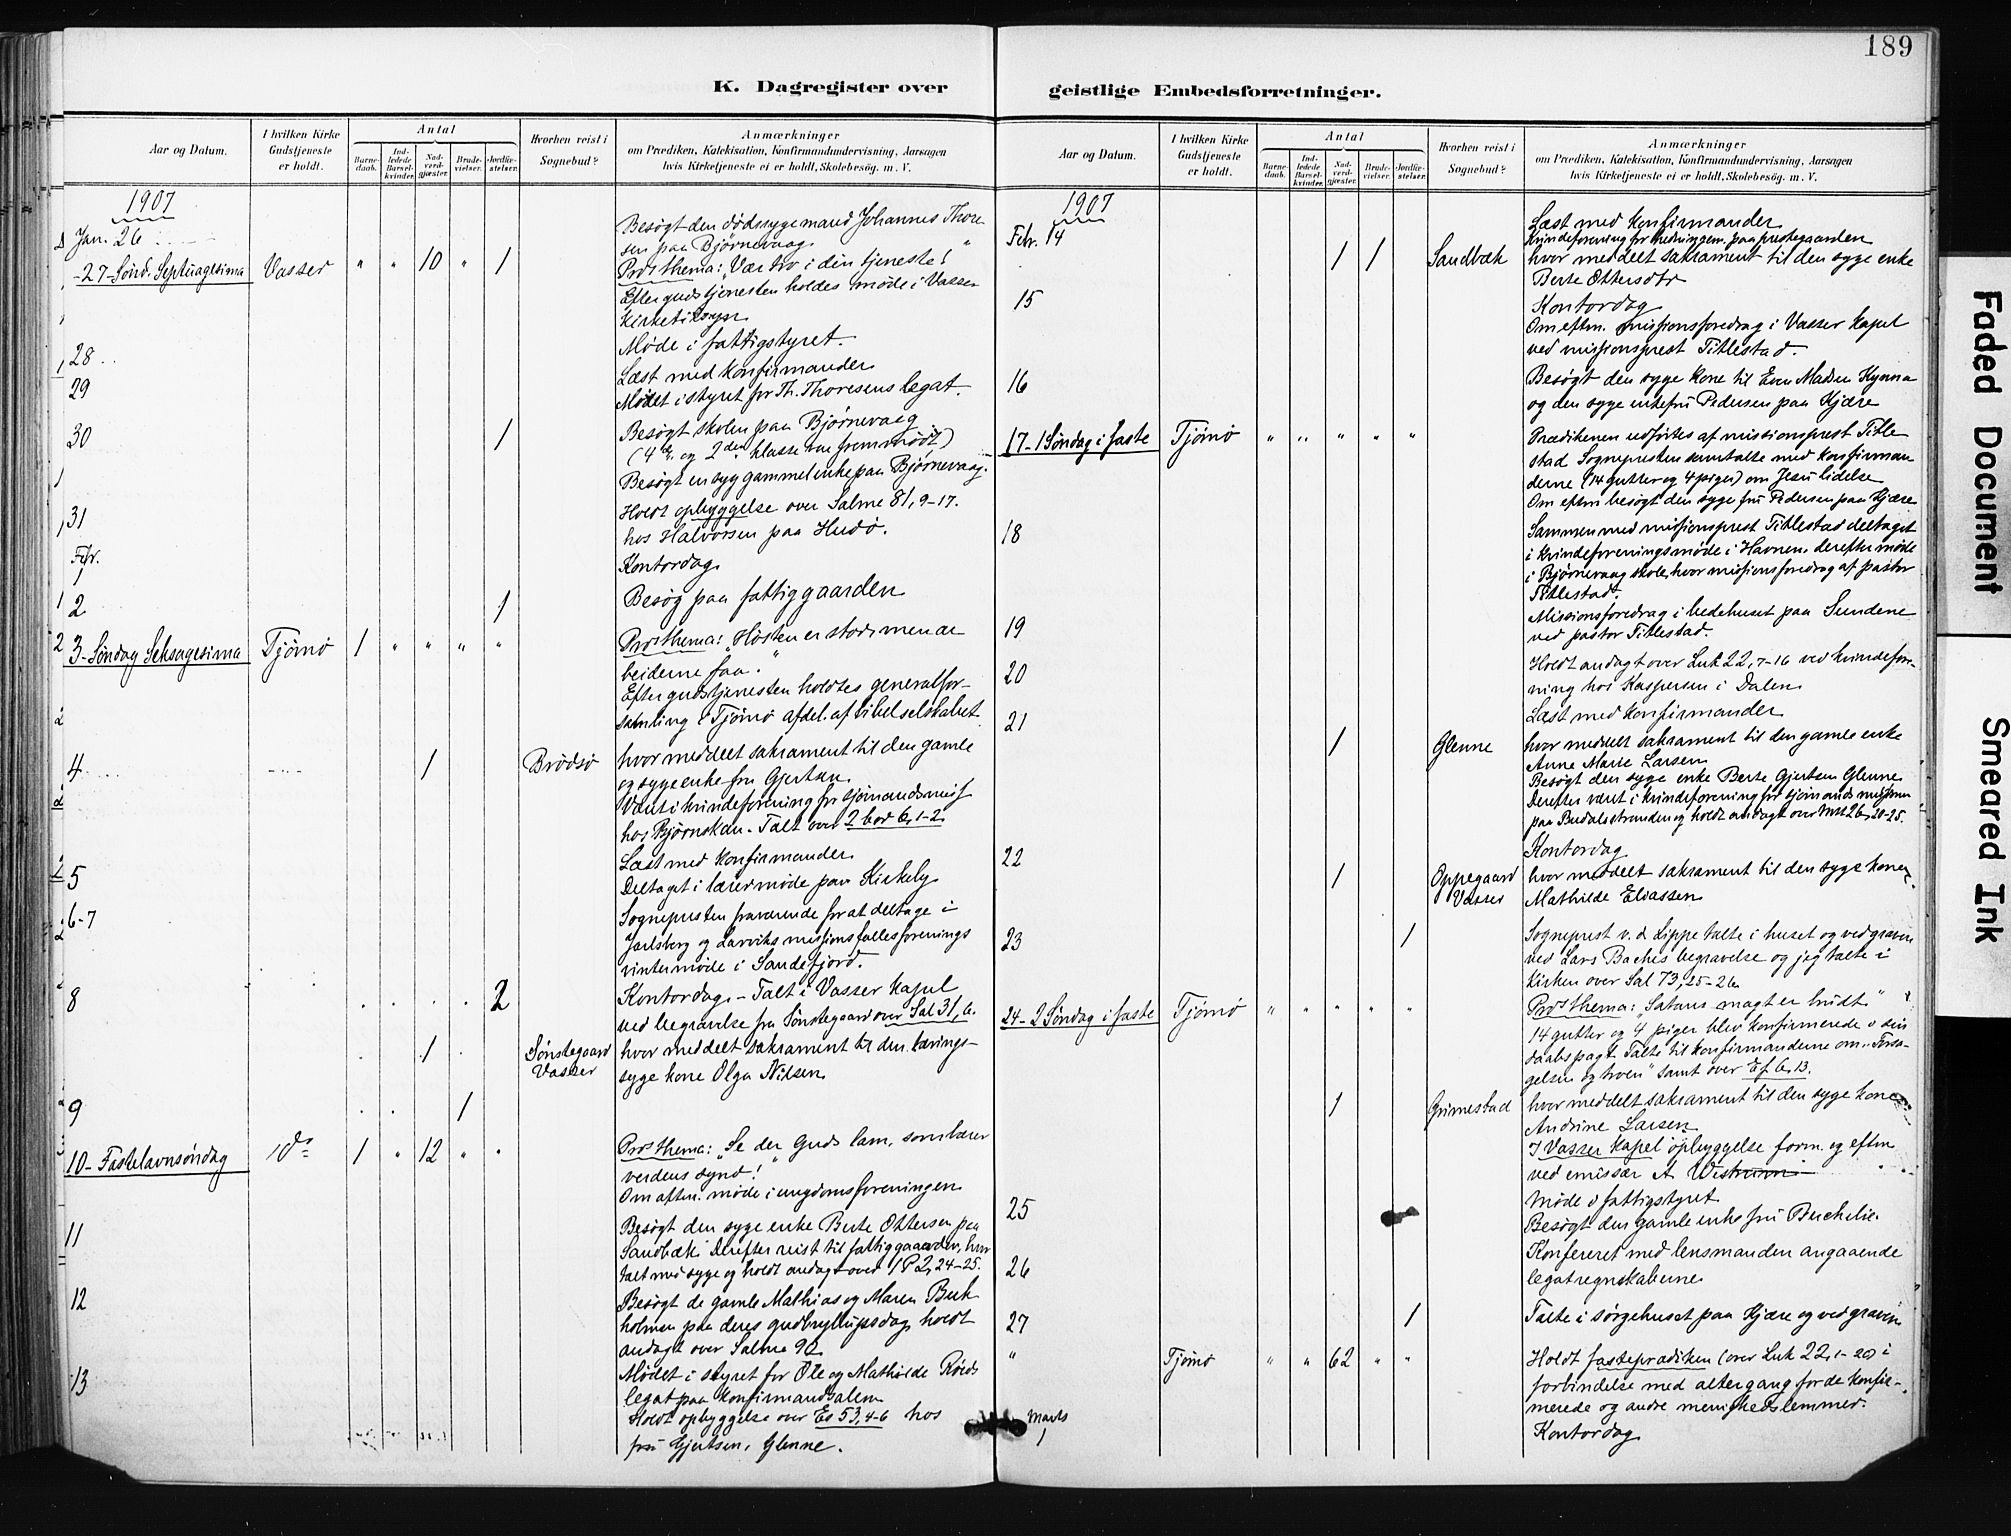 189
K. Dagregister over
Aar og Datum.
I hvilken Kirke Gudstjeneste er holdt.
Antal
Barnedaab.
Indledede Barselkvinder.
Nadverdgjæster.
Brudevielser.
Jordfæstelser.
Hvorhen reist i Sognebud?
Anmærkninger
om Prædiken, Katekisation, Konfirmandundervisning, Aarsagen
hvis Kirketjeneste ei er holdt, Skolebesøg. m. V.
1907
Jan. 26 Besøgt den dødssyge mand Johannes Thore
sen paa Bjørnevaag.
-27-Sønd. Septuagesima Vasser " " 10 " 1 Præs thema: Vær tro i din tjeneste!
Efter gudstjenesten holdes møde i Vasser
Kirketilsyn
28 Møde i fattigstyret.
29 Læst med konfirmander
Mødet i styret for Th. Thoresens legat.
30 1 Besøgt skolen paa Bjørnevaag
(4de og 2den klasse var fremmødt)
Besøgt en syg gammel enke paa Bjørnevaag.
31 Holdt opbyggelse over Salme 81, 9-17.
hos Halvorsen paa Hudø.
Febr.
1 Kontordag
2 1 Besøg paa fattiggaarden
3-Søndag Seksagesima Tjømø 1 " " " " Præs thema: "Høsten er stor, men ar
beiderne faa."
Efter gudstjenesten holdtes generalfor-
samling i Tjømø afdel. af bibelselskabet
4 1 Brødsø hvor meddelt sakrament til den gamle
og syge enke fru Gjertsen.
Været i kvindeforening for sjømandsmis
hos Bjørnskau. Talt over 2 Cor 6, 1-2
5 Læst med konfirmander
Deltaget i lærermøde paa Kirkeby
6-7 Sognepresten fraværende for at deltage i
Jarlsberg og Larviks missionsfællesforenings
vintermøde i Sandefjord.
8 2 Kontordag - Talt i Vasser kapel
ved begravelse fra Sønstegaard over Sal 31, 6.
1 Sønstegaard Vasser hvor meddelt sakrament til den tærings-
syge kone Olga Nilsen
9 1
10- Fastelavnsøndag do 1 " 12 " " Præs thema: "Se der Guds lam, som bærer
verdens synd!"
Om aften. møde i ungdomsforeningen
11 Besøgt den syge enke Berte Ottersen paa
Sandbæk Derefter reist til fattiggaarden, hvor
talt med syge og holdt andagt over 1 P 2, 24-25.
12 Besøgt de gamle Mathias og Maren Buk
holmen paa deres guldbryllupsdag, holdt
andagt over Salme 90
13 Mødet i styret for Ole og Mathilde Røeds
legat paa konfirmandsalen
Holdt opbyggelse over Es 53, 4-6 hos
fru Gjertsen, Glenne.
geistlige Embedsforretninger.
Aar og Datum.
I hvilken Kirke Gudstjeneste er holdt.
Antal
Barnedaab.
Indledede Barselkvinder.
Nadverdgjæster.
Brudevielser.
Jordfæstelser.
Hvorhen reist i Sognebud?
Anmærkninger
om Prædiken, Katekisation, Konfirmandundervisning, Aarsagen
hvis Kirketjeneste ei er holdt, Skolebesøg. m. V.
1907
Febr. 14 Læst med konfirmander
Kvindeforening for hedningem. paa prestegaarden
1 1 Sandbæk hvor meddelt sakrament til den syge enke
Berte Ottersdtr
15 Kontordag
Om eftm. missionsforedrag i Vasser kapel
ved missionsprest Titlestad.
16 Besøgt den syge kone til Even Madsen Kynna
og den syge enkefru Pedersen paa Kjære
17-1 Søndag i faste Tjømø " " " " " Prædikenen udførtes af missionsprest Title
stad Sognepresten samtalte med konfirman
derne (14 gutter og 4 piger) om Jesu lidelse
Om eftm besøgt den syge fru Pedersen paa Kjære
18 Sammen med missionsprest Titlestad deltaget
i kvindeforeningsmøde i Havnen derefter møde
i Bjørnevaag skole, hvor missionsforedrag af pastor
Titlestad.
19 Missionsforedrag i bedehuset paa Sundene
ved pastor Titlestad.
20 Holdt andagt over Luk 22, 7-16 ved kvindefore-
ning hos Kaspersen i Dalen
21 Læst med konfirmander
1 Glenne hvor meddelt sakrament til den gamle enke
Anne Marie Larsen
Besøgt den syge enke Berte Gjertsen Glenne
Derefter været i kvindeforening for sjømandsmissionen
paa Budalsstranden og holdt andagt over Mt 26, 20-25.
22 Kontordag
1 Oppegaard Vasser hvor meddelt sakrament til den syge kone
Mathilde Eliassen
23 1 Sogneprest v. d Lippe talte i huset og ved graven
ved Lars Baches begravelse og jeg talte i
kirken over Sal 73, 25-26
24-2 Søndag i faste Tjømø " " " " " Præs thema: Satans magt er brudt"
14 gutter og 4 piger blev konfirmerede i sin
daabspagt Talte til konfirmanderne om "Forsa-
gelsen og troen" samt over Ef 6, 13.
1 Grimestad hvor meddelt sakrament til den syge kone
Andrine Larsen
I Vasser kapel opbyggelse form. og eftm
ved emissær A Wistrumm
25 Møde i fattigstyret
Besøgt den gamle enkefru Buchelie.
26 Konfereret med lensmanden angaaende
legatregnskaberne
27 1 Talte i sørgehuset paa Kjære og ved graven
" Tjømø " " 62 " " Holdt fasteprædiken (over Luk 22, 1-20) i
forbindelse med altergang for de konfir-
merede og andre menighedslemmer.
Marts
1 Kontordag
Faded Document
Smeared Ink